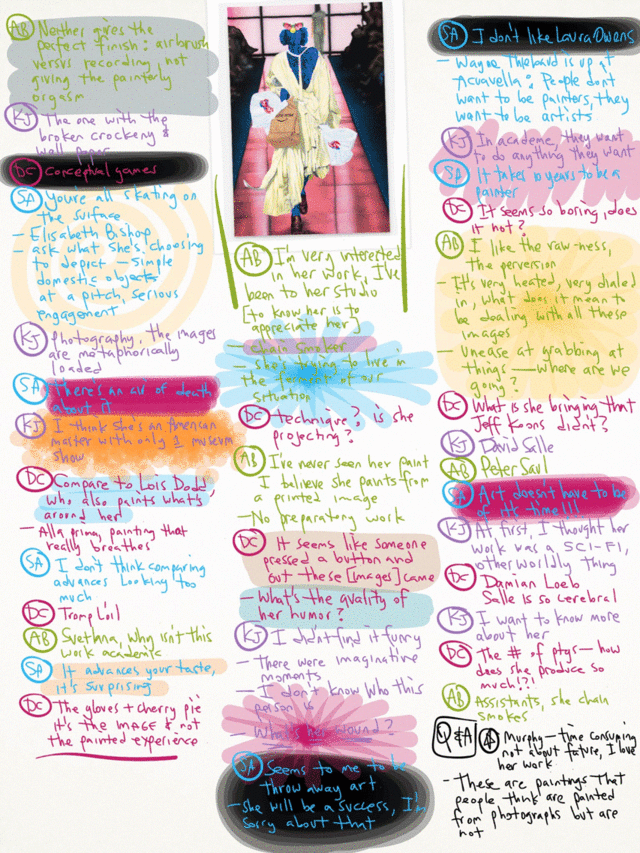 AB Neither gives the
perfect finish: airbrush
versus recording, not
giving the painterly
orgasm
KJ The one with the
broken crockery &
wall paper
DC Conceptual games
SA You're all skating on
the surface
- Elisabeth Bishop
- ask what she's choosing
to depict — simple
domestic objects
at a pitch, serious
engagement
KJ Photography, the images
are metaphorically
loaded
SA There's an air of death
about it
KJ I think she's an American
master with only 1 museum
show
DC Compare to Lois Dodd
who also paints what's
around her
- Alla prima, painting that
really breathes
SA I don't think comparing
advances looking too
much
DC Tromp L'oil
AB Svetlna, why isn't this
work academic
SA It advances your taste,
it's surprising
DC The gloves + cherry pie
it's the IMAGE & not
the painted experience
AB I'm very interested
in her work, I've
been to her studio
[to know her is to
appreciate her]
- chain smoker
- she's trying to live in
the of our
situation
DC technique? is she
projecting?
AB I've never seen her paint
I believe she paints from
a printed image
- No preparatory work
DC It seems like someone
pressed a button and
out these [images] came
- What's the quality of
her humor?
KJ I didn't find it funny
- There were imaginative
moments
- I don't know who this
person is
- What's her wound?
SA Seems to me to be
throw away art
- she will be a success, I'm
sorry about that
SA I don't like Laura Owens
- Wayne Thiebaud is up at
Acuavella: People don't
want to be painters, they
want to be artists
KJ In academe, they want
to do anything they want
SA It takes 10 years to be a
painter
DC It seems so boring, does
it not?
AB I like the raw-ness,
the perversion
- It's very heated, very dialed
in, what does it mean to
be dealing with all these
images
- Unease at grabbing at
things — where are we
going?
DC What is she bringing that
Jeff Koons didn't?
KJ David Salle
AB Peter Saul
SA Art doesn't have to be
of its time!!!
KJ At first, I thought her
work was a SCI-FI,
otherworldly thing
DC Damian Loeb
Salle is so cerebral
KJ I want to know more
about her
DC The # of ptgs — how
does she produce so
much?!?
AB Assistants, she chain
smokes
Q & A Murphy — time consuming
not about future, I love
her work
- These are paintings that
people think are painted
from photographs but are
not